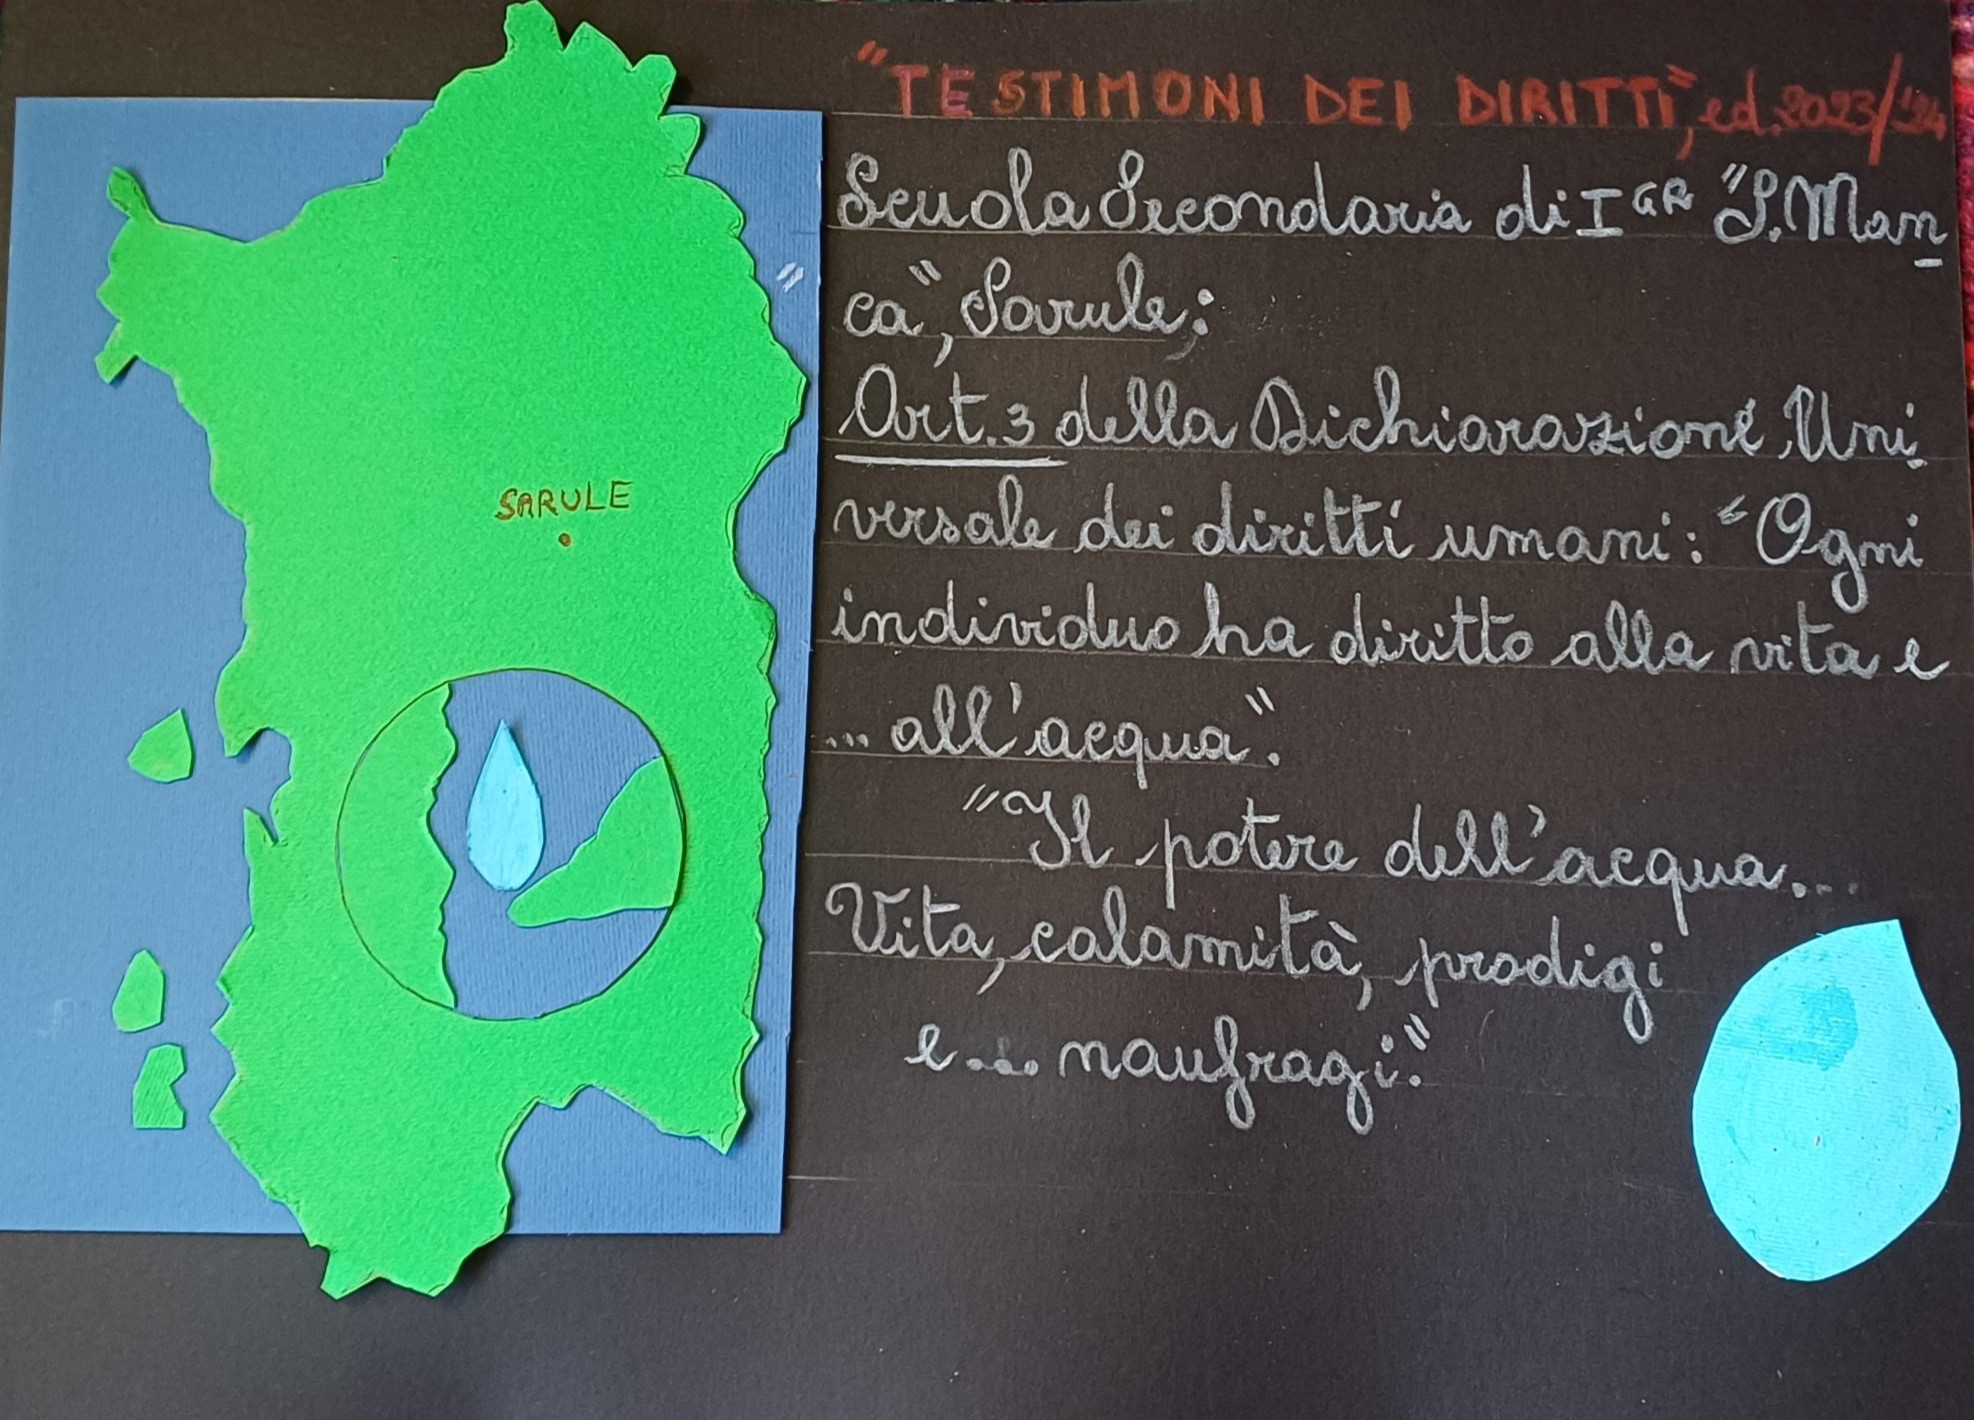 "TESTIMONI DEI DIRITTI", ed. 2023/'24
Scuola Secondaria di I GR "S. Man
ca", Sarule;
Art. 3 della Dichiarazione Uni
versale dei diritti umani: "Ogni
individuo ha diritto alla vita e
... all'acqua".
"Il potere dell'acqua...
Vita, calamità, prodigi
e... naufragi."
SARULE